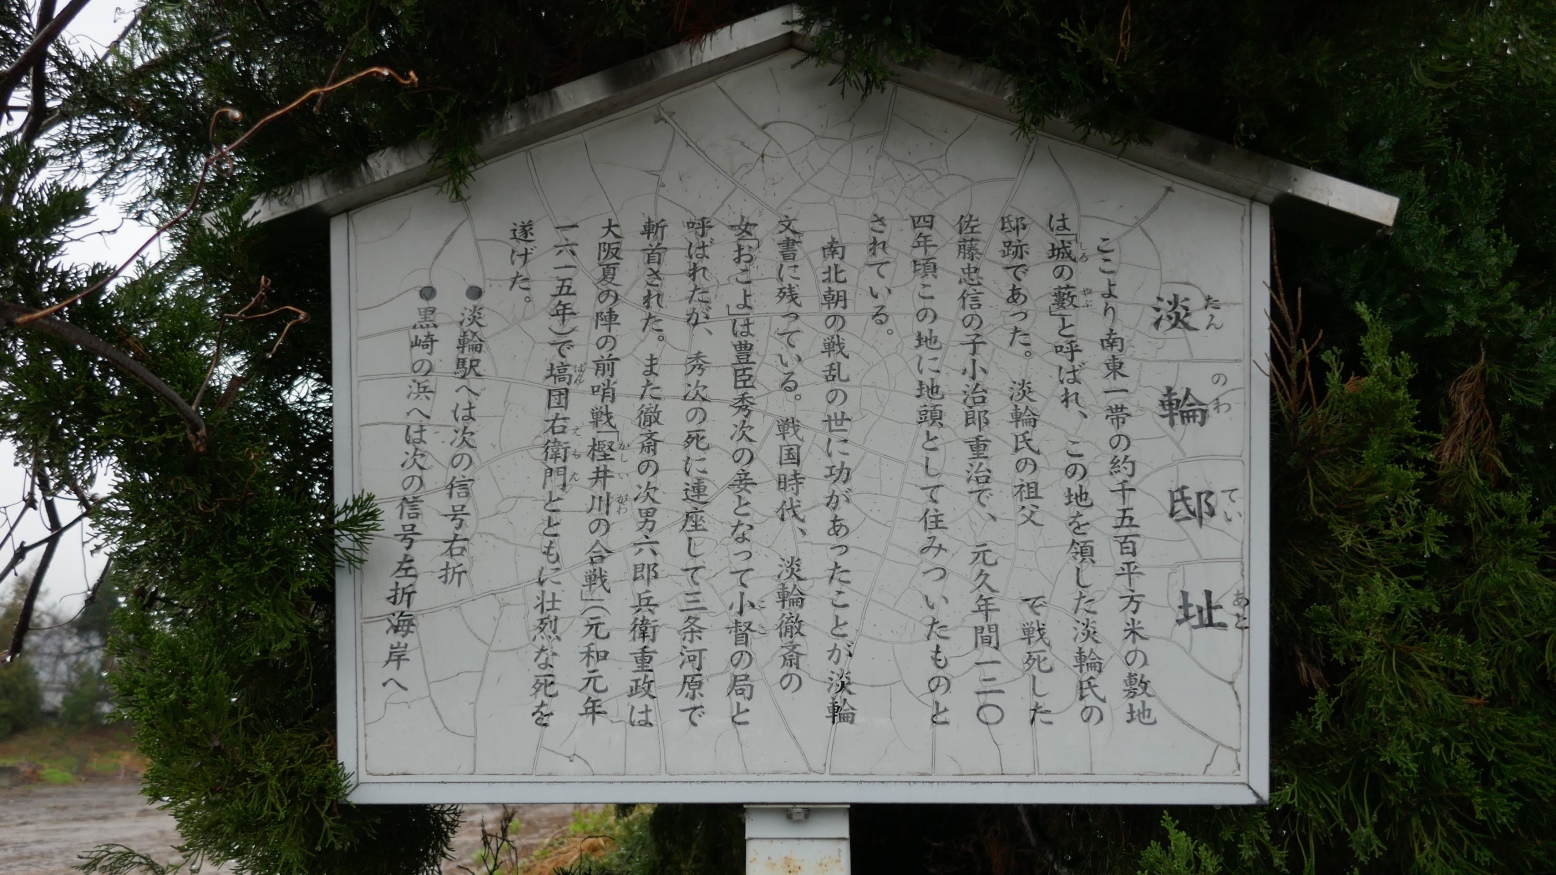 淡輪邸址
ここより南東一帯の約千五百平方米の敷地
は「城の藪」と呼ばれ、この地を領した淡輪氏の
邸跡であった。淡輪氏の祖父 で戦死した
佐藤忠信の子小治郎重治で、元久年間一二〇
四年頃この地に地頭として住みついたものと
されている。
南北朝の戦乱の世に功があったことが淡輪
文書に残っている。戦国時代、淡輪徹斎の
女「おこよ」は豊臣秀次の妾となって小督の局と
呼ばれたが、秀次の死に連座して三条河原で
斬首された。また徹斎の次男六郎兵衛重政は
大阪夏の陣の前哨戦「樫井川の合戦」(元和元年
一六一五年)で塙団右衛門とともに壮烈な死を
遂げた。
●淡輪駅へは次の信号右折
●黒崎の浜へは次の信号左折海岸へ